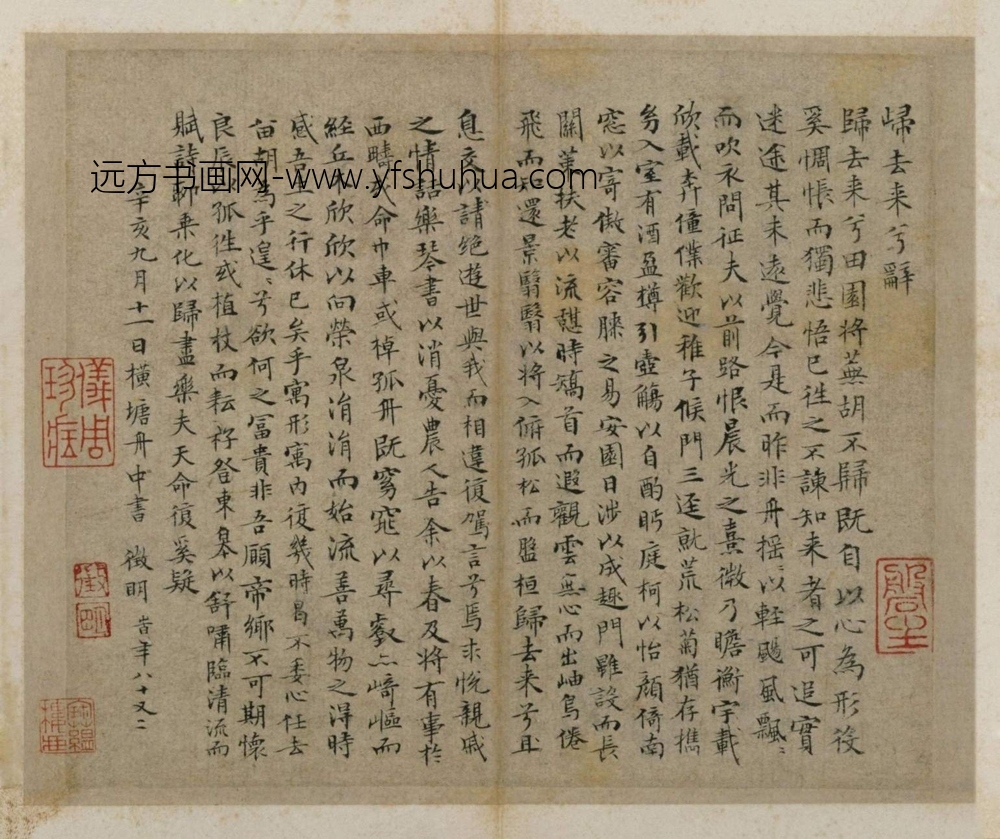 歸去来兮辭
歸去来兮田園將蕪胡不歸既自以心為形役
奚惆悵而獨悲悟已往之不諫知来者之可追實
迷途其未遠覺今是而昨非舟摇〻以輕颺風飄〻
而吹衣問征夫以前路恨晨光之熹微乃瞻衡宇載
欣載奔僮僕歡迎稚子候門三逕就荒松菊猶存攜
幼入室有酒盈樽引壺觴以自酌眄庭柯以怡顏倚南
窓以寄傲審容膝之易安園日涉以成趣門雖設而長
關策扶老以流憩時矯首而遐觀雲無心而出岫鳥倦
飛而知還景翳翳以將入拊孤松而盤桓歸去来兮且
息交以請绝遊世與我而相違復駕言兮焉求悦親戚
之情話樂琴書以消憂農人告余以春及將有事於
西疇或命巾車或棹孤舟既窈窕以尋壑亦崎嶇而
經丘木欣欣以向榮泉涓涓而始流善萬物之得時
感吾生之行休已矣乎寓形寓内復幾時曷不委心任去
留胡為乎遑〻兮欲何之富貴非吾願帝鄉不可期懷
良辰以孤往或植杖而耘耔登東皋以舒嘯臨清流而
賦詩聊乘化以歸盡樂夫天命復奚疑
辛亥九月十一日橫塘舟中書 徵明 旹年八十又二
徵明
儀周珍藏
远方书画网-www.yfshuhua.com